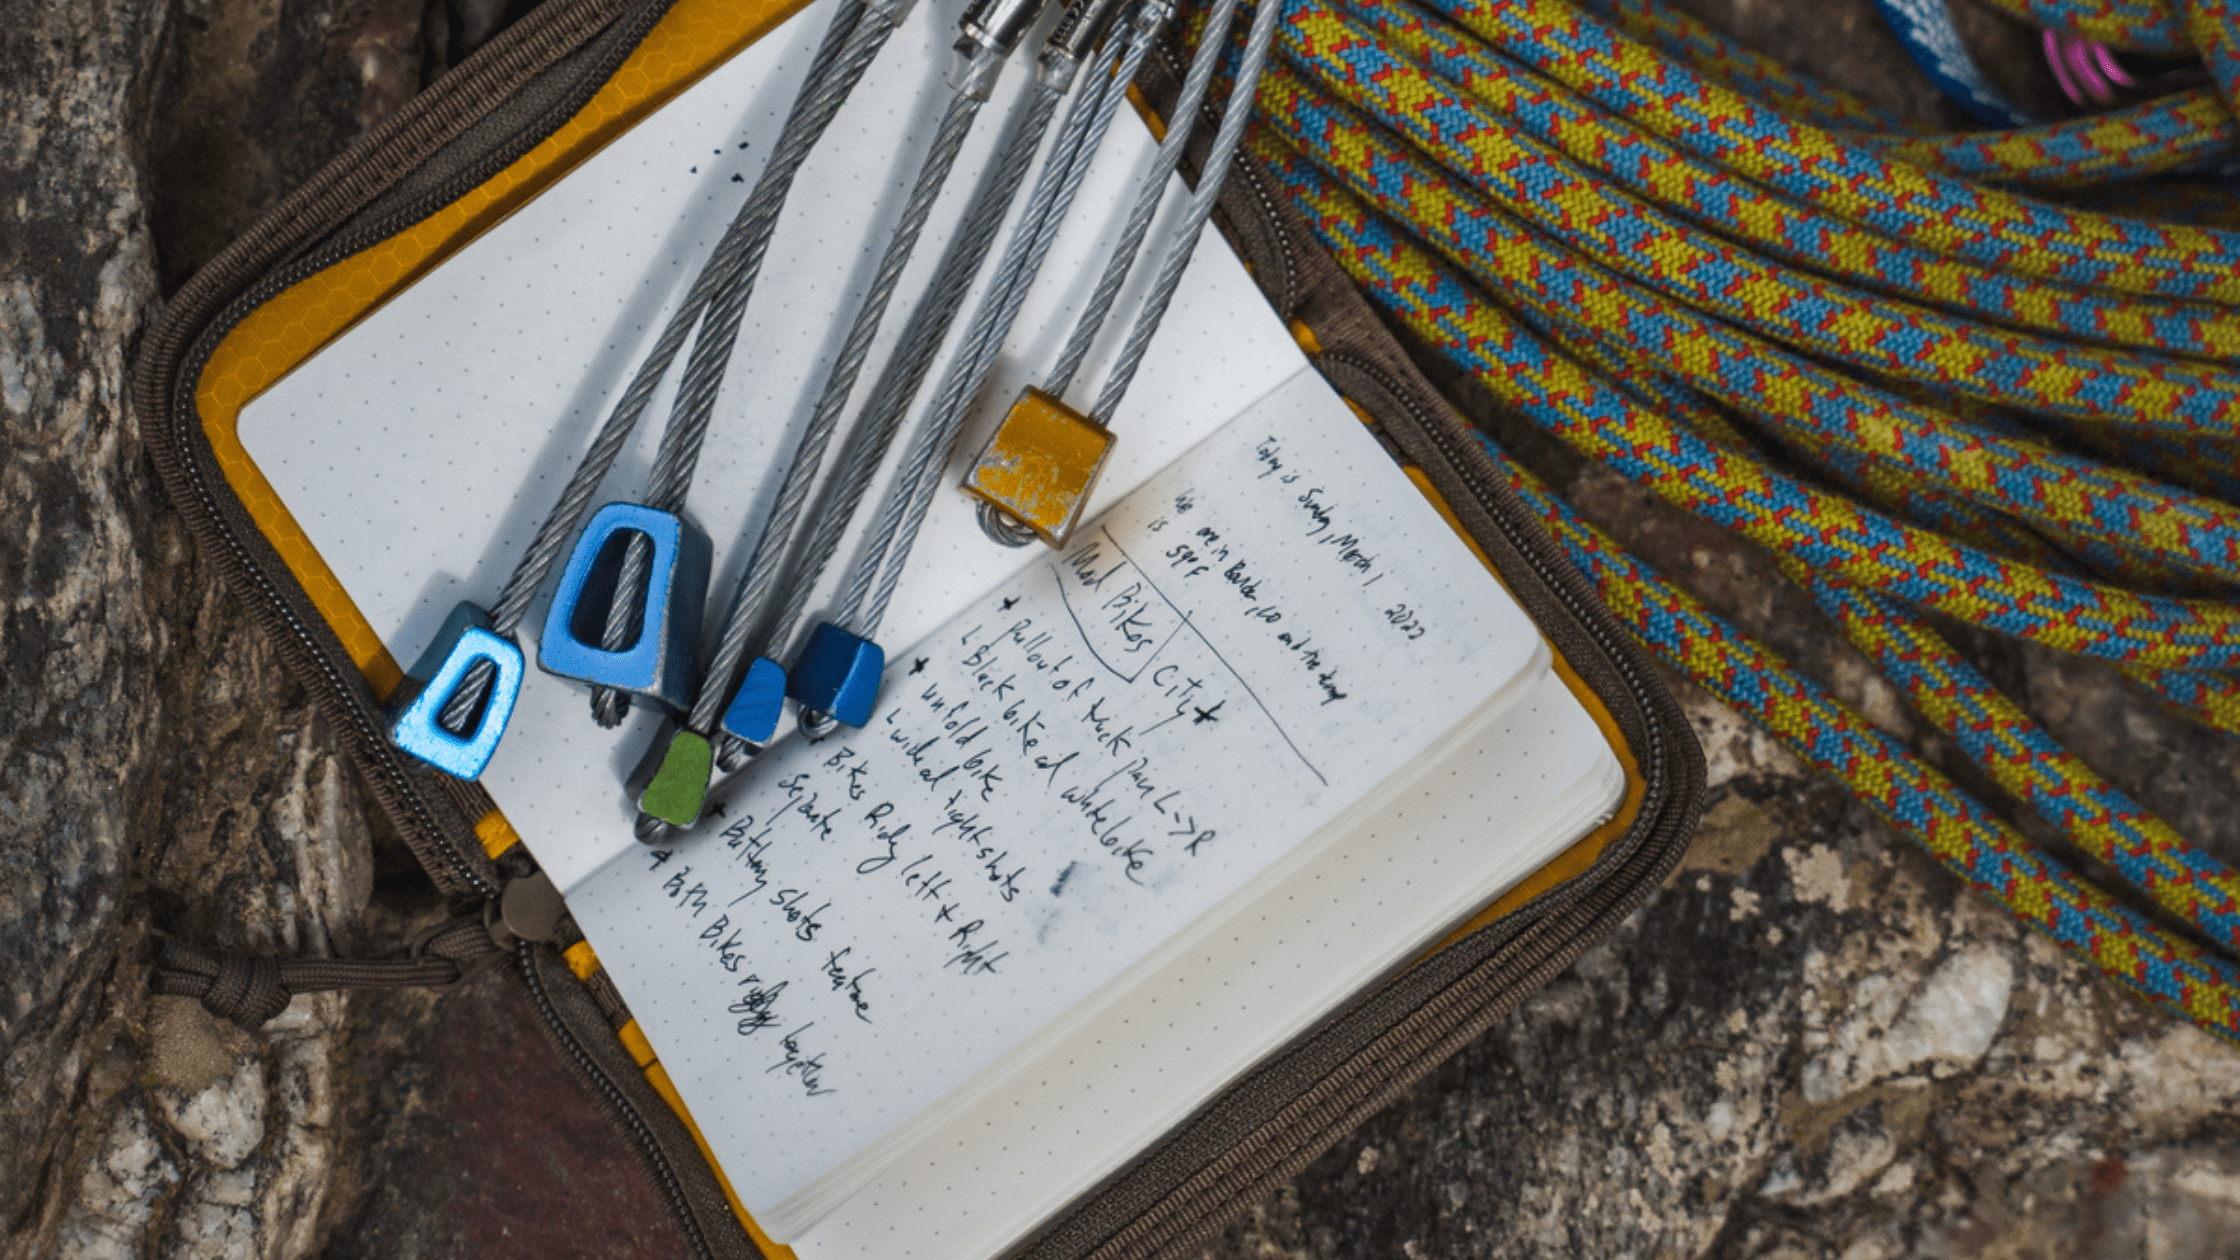 Today is Sunday, March 1 2022
We are in Boulder, CO and the temp
is 59°F
Mod Bikes City
Pull out of truck pan L->R
L Black bike and white bike
unfold bike
L wide and tight shots
Bikes Riding left + Right
Separate
Battery shots feature
Both Bikes riding together